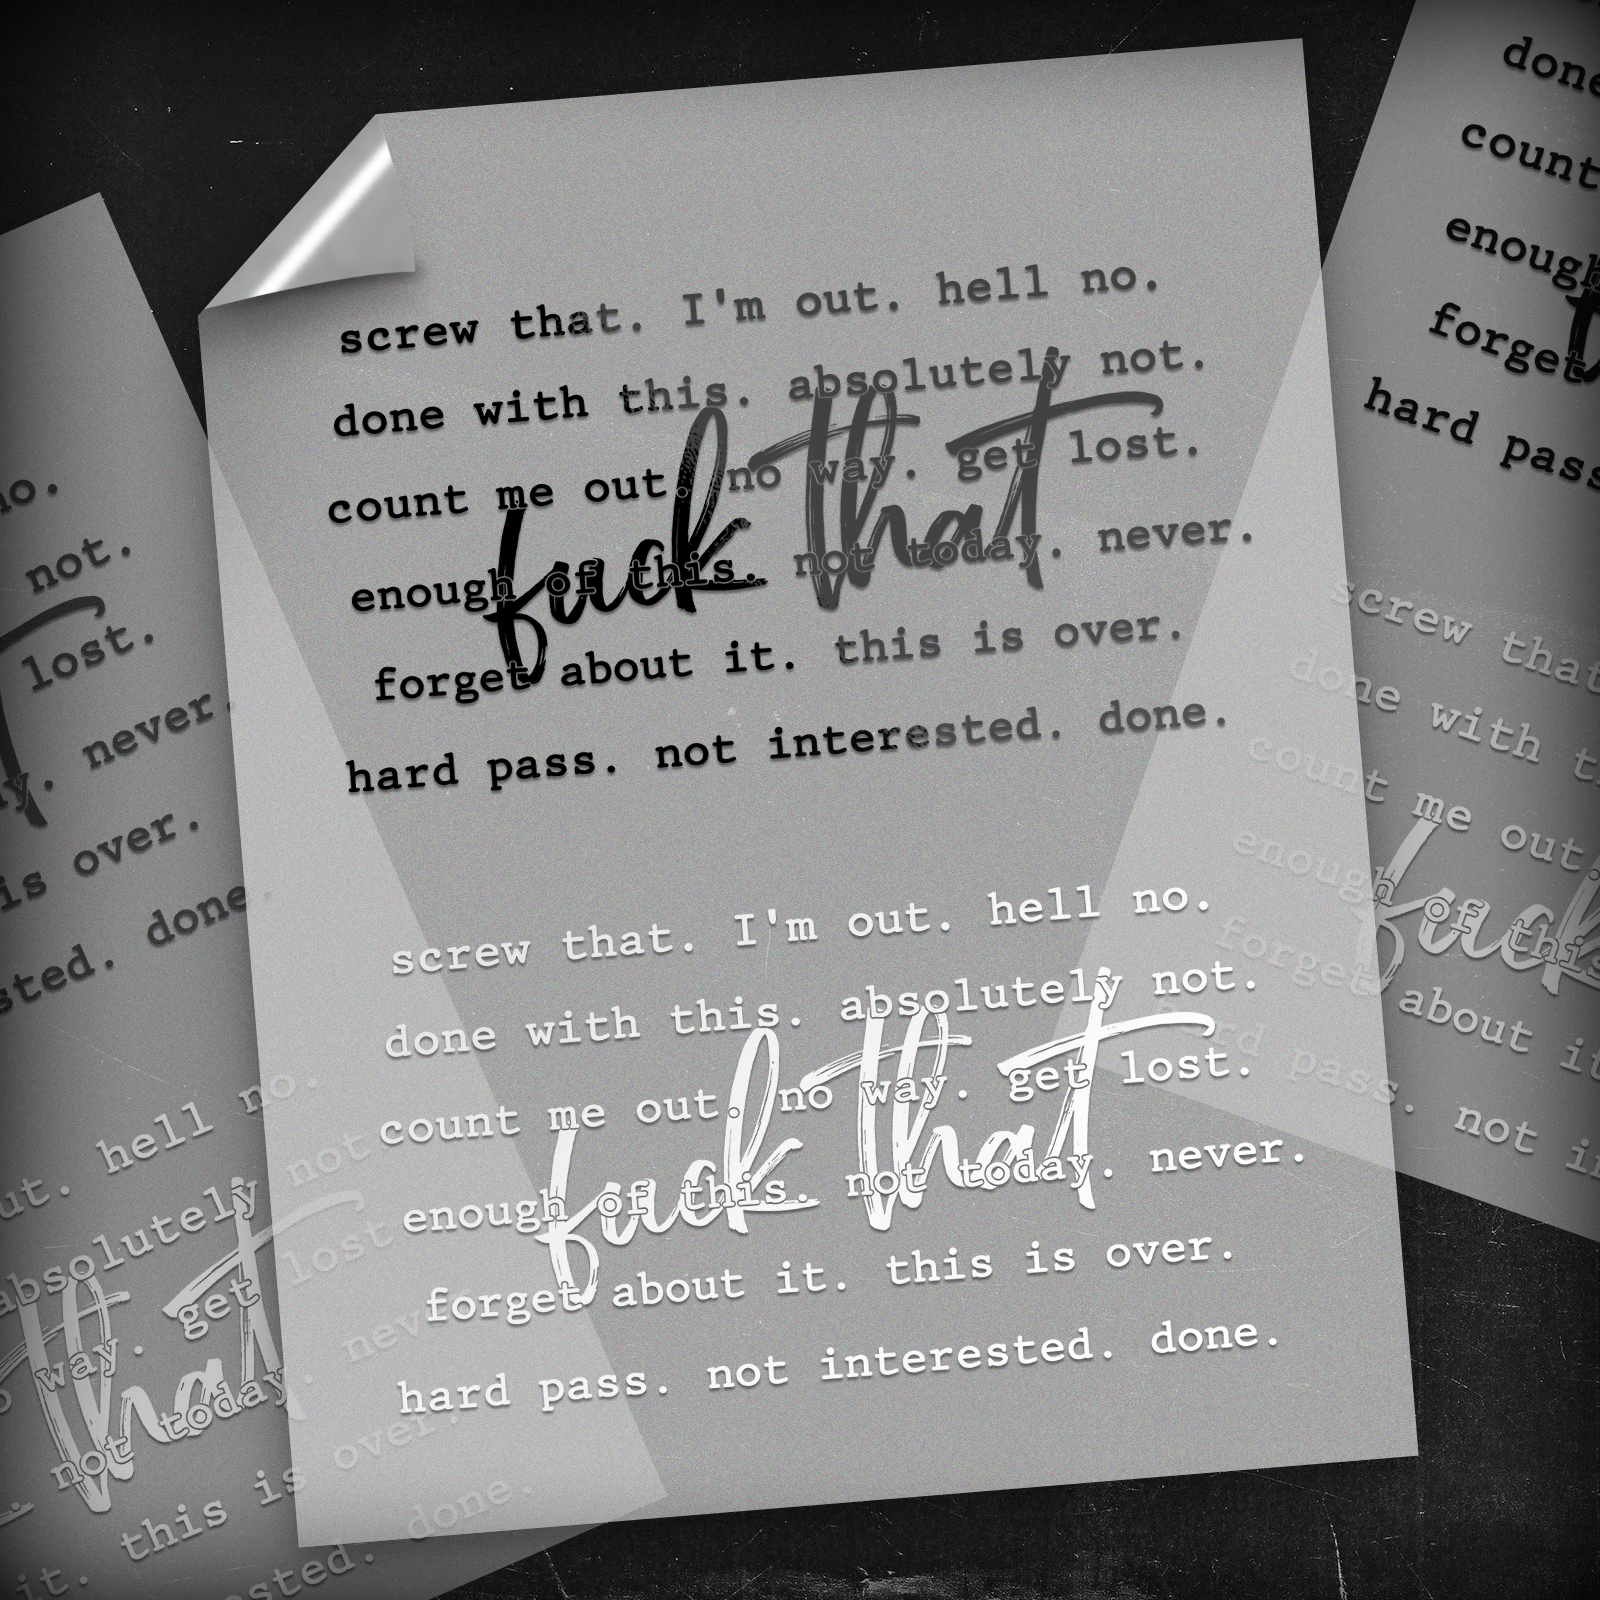 screw that. I'm out. hell no.
done with this. absolutely not.
count me out. no way. get lost.
fuck that
enough of this. not today. never.
forget about it. this is over.
hard pass. not interested. done.
screw that. I'm out. hell no.
done with this. absolutely not.
count me out. no way. get lost.
fuck that
enough of this. not today. never.
forget about it. this is over.
hard pass. not interested. done.
no.
not.
lost.
never.
is over.
done.
hell no.
absolutely not
way. get lost
that
not today. never
it. this is over.
done.
done
count
enough
forget
hard pass
screw that
done with
count me out.
fuck
enough of this
forget about it
hard pass. not